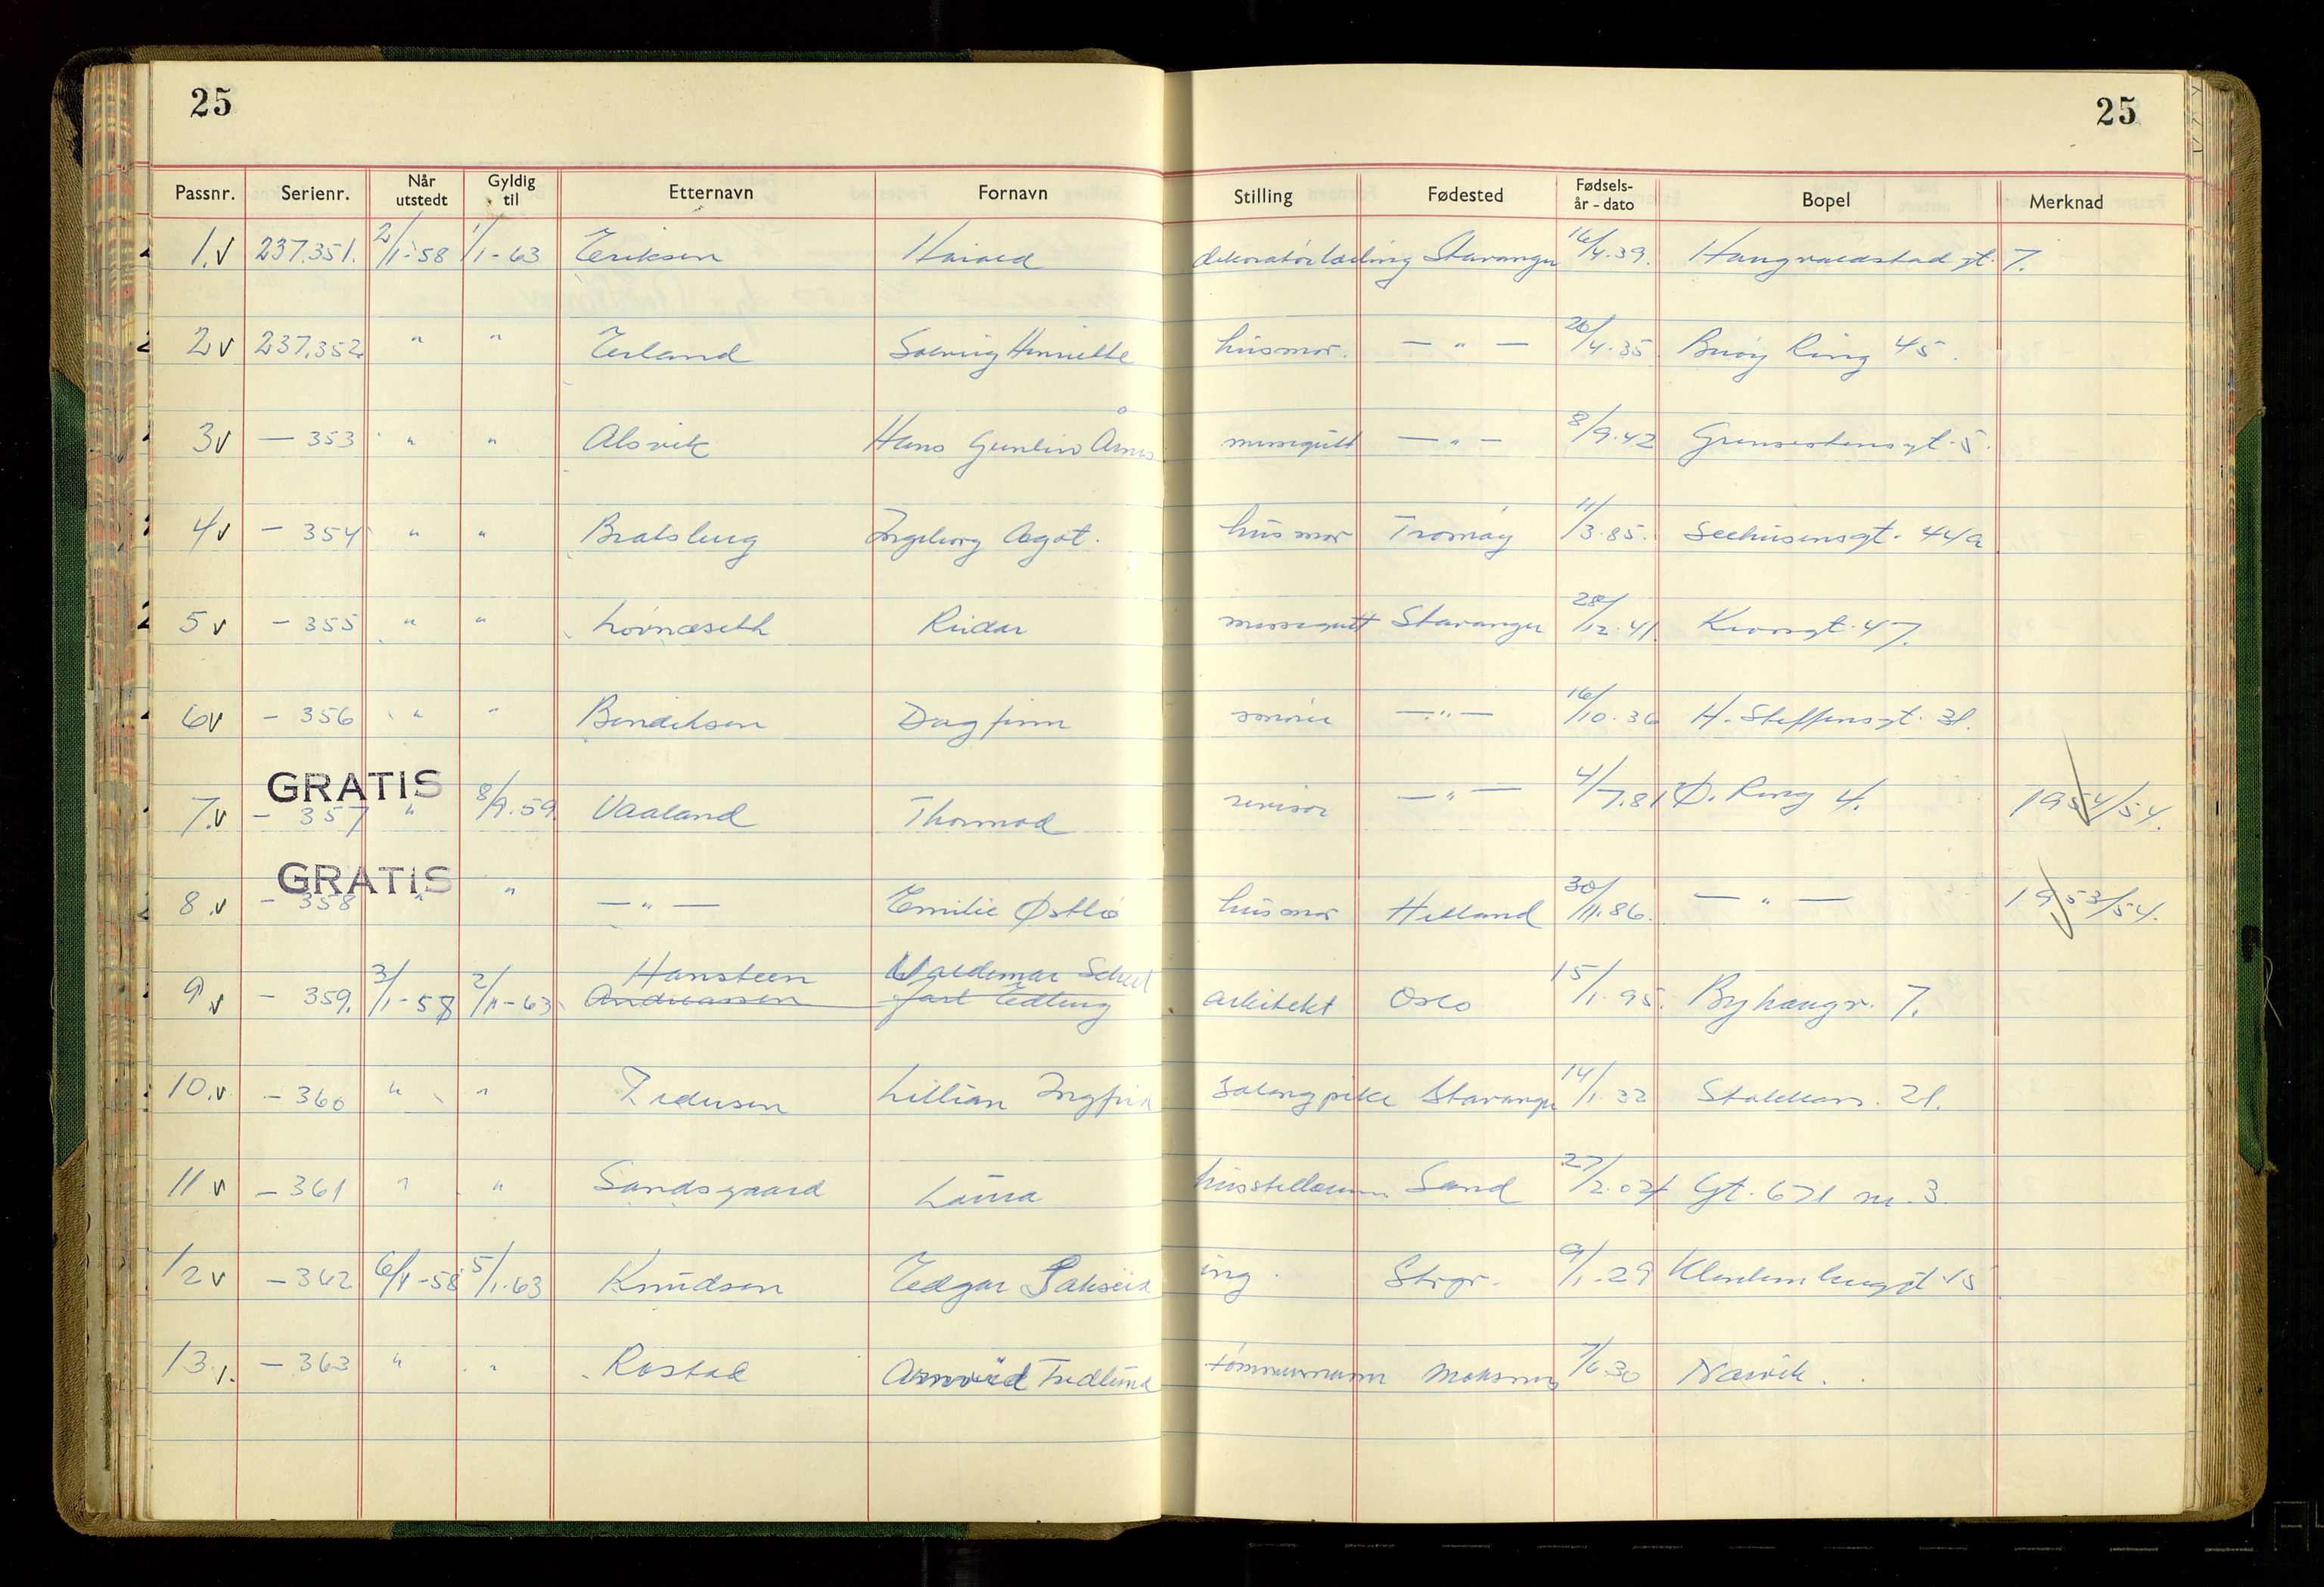 25
25
Passnr. Serienr. Når utstedt Gyldig til Etternavn Fornavn Stilling Fødested Fødsels-år - dato Bopel Merknad
1. v 237.351. 2/1-58 1/1-63 Eriksen Harald dekoratørlærling Stavanger 16/4.39. Haugvaldstad gt. 7.
2 v 237.352 " " Erland Solveig Henriette husmor. — " — 26/4.35. Buøy Ring 45.
3 v — 353 " " Alsvik Hans messegutt — " — 8/9.42 5.
4 v — 354 " " Bratsberg Ingeborg Agot. husmor Tromøy 11/3.85. Seehusensgt. 44a
5 v — 355 " " Lövnæseth Reidar messegutt Stavanger 28/12.41. 47.
6 v — 356 " " Bendiksen Dagfinn smører — " — 16/10.36 H. Steffensgt. 31.
GRATIS
7. v — 357 " 8/9.59. Vaaland Thormod revisor — " — 4/7.81 Ø. Ring 4. 1954/54.
GRATIS
8. v — 358 " " — " — Emilie Østbø husmor Helland 30/11.86. — " — 1953/54.
Hansteen Waldemar
9. v — 359. 3/1-58 2/1-63 Andreassen Jarl Edberg arkitekt Oslo 15/1.95. Byhaugv. 7.
10. v — 360 " " Pedersen Lillian Ingfrid Stavanger 14/1.32 Stokkav. 21.
11 v — 361 " " Sandsgaard Laura Sand 27/2.04 Gt. 671 nr. 3.
12 v — 362 6/1-58 5/1.63 Knudsen Edgar ing. Strgr. 9/1.29 15
13. v. — 363 " " Rostad Arnvid Fredlund tømmermann Moksnes 7/6.30 Narvik.